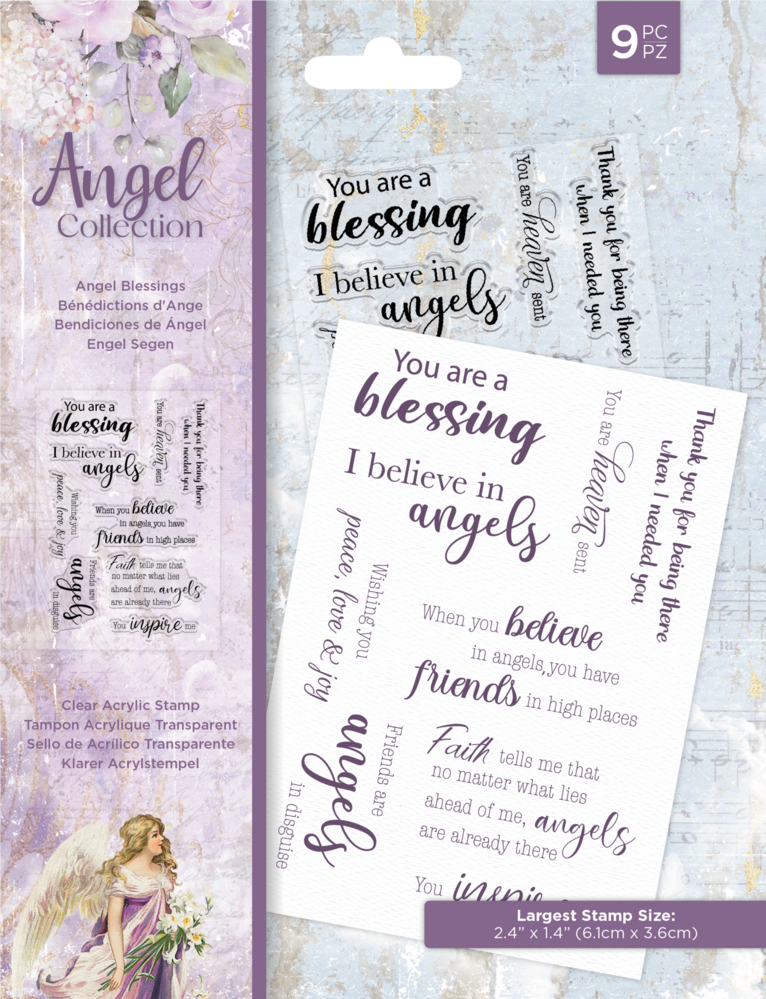 Angel
Collection
Angel Blessings
Bénédictions d'Ange
Bendiciones de Ángel
Engel Segen
You are a
blessing
I believe in
angels
You are heaven sent
Thank you for being there
when I needed you
Wishing you
peace, love & joy
When you believe
in angels,you have
friends in high places
Friends are
angels
in disguise
Faith tells me that
no matter what lies
ahead of me, angels
are already there
You inspire me
Clear Acrylic Stamp
Tampon Acrylique Transparent
Sello de Acrílico Transparente
Klarer Acrylstempel
9 PC
PZ
You are a
blessing
I believe in
angels
You are heaven sent
Thank you for being there
when I needed you
You are a
blessing
I believe in
angels
You are heaven sent
Thank you for being there
when I needed you
Wishing you
peace, love & joy
When you believe
in angels,you have
friends in high places
Friends are
angels
in disguise
Faith tells me that
no matter what lies
ahead of me, angels
are already there
You
Largest Stamp Size:
2.4” x 1.4” (6.1cm x 3.6cm)